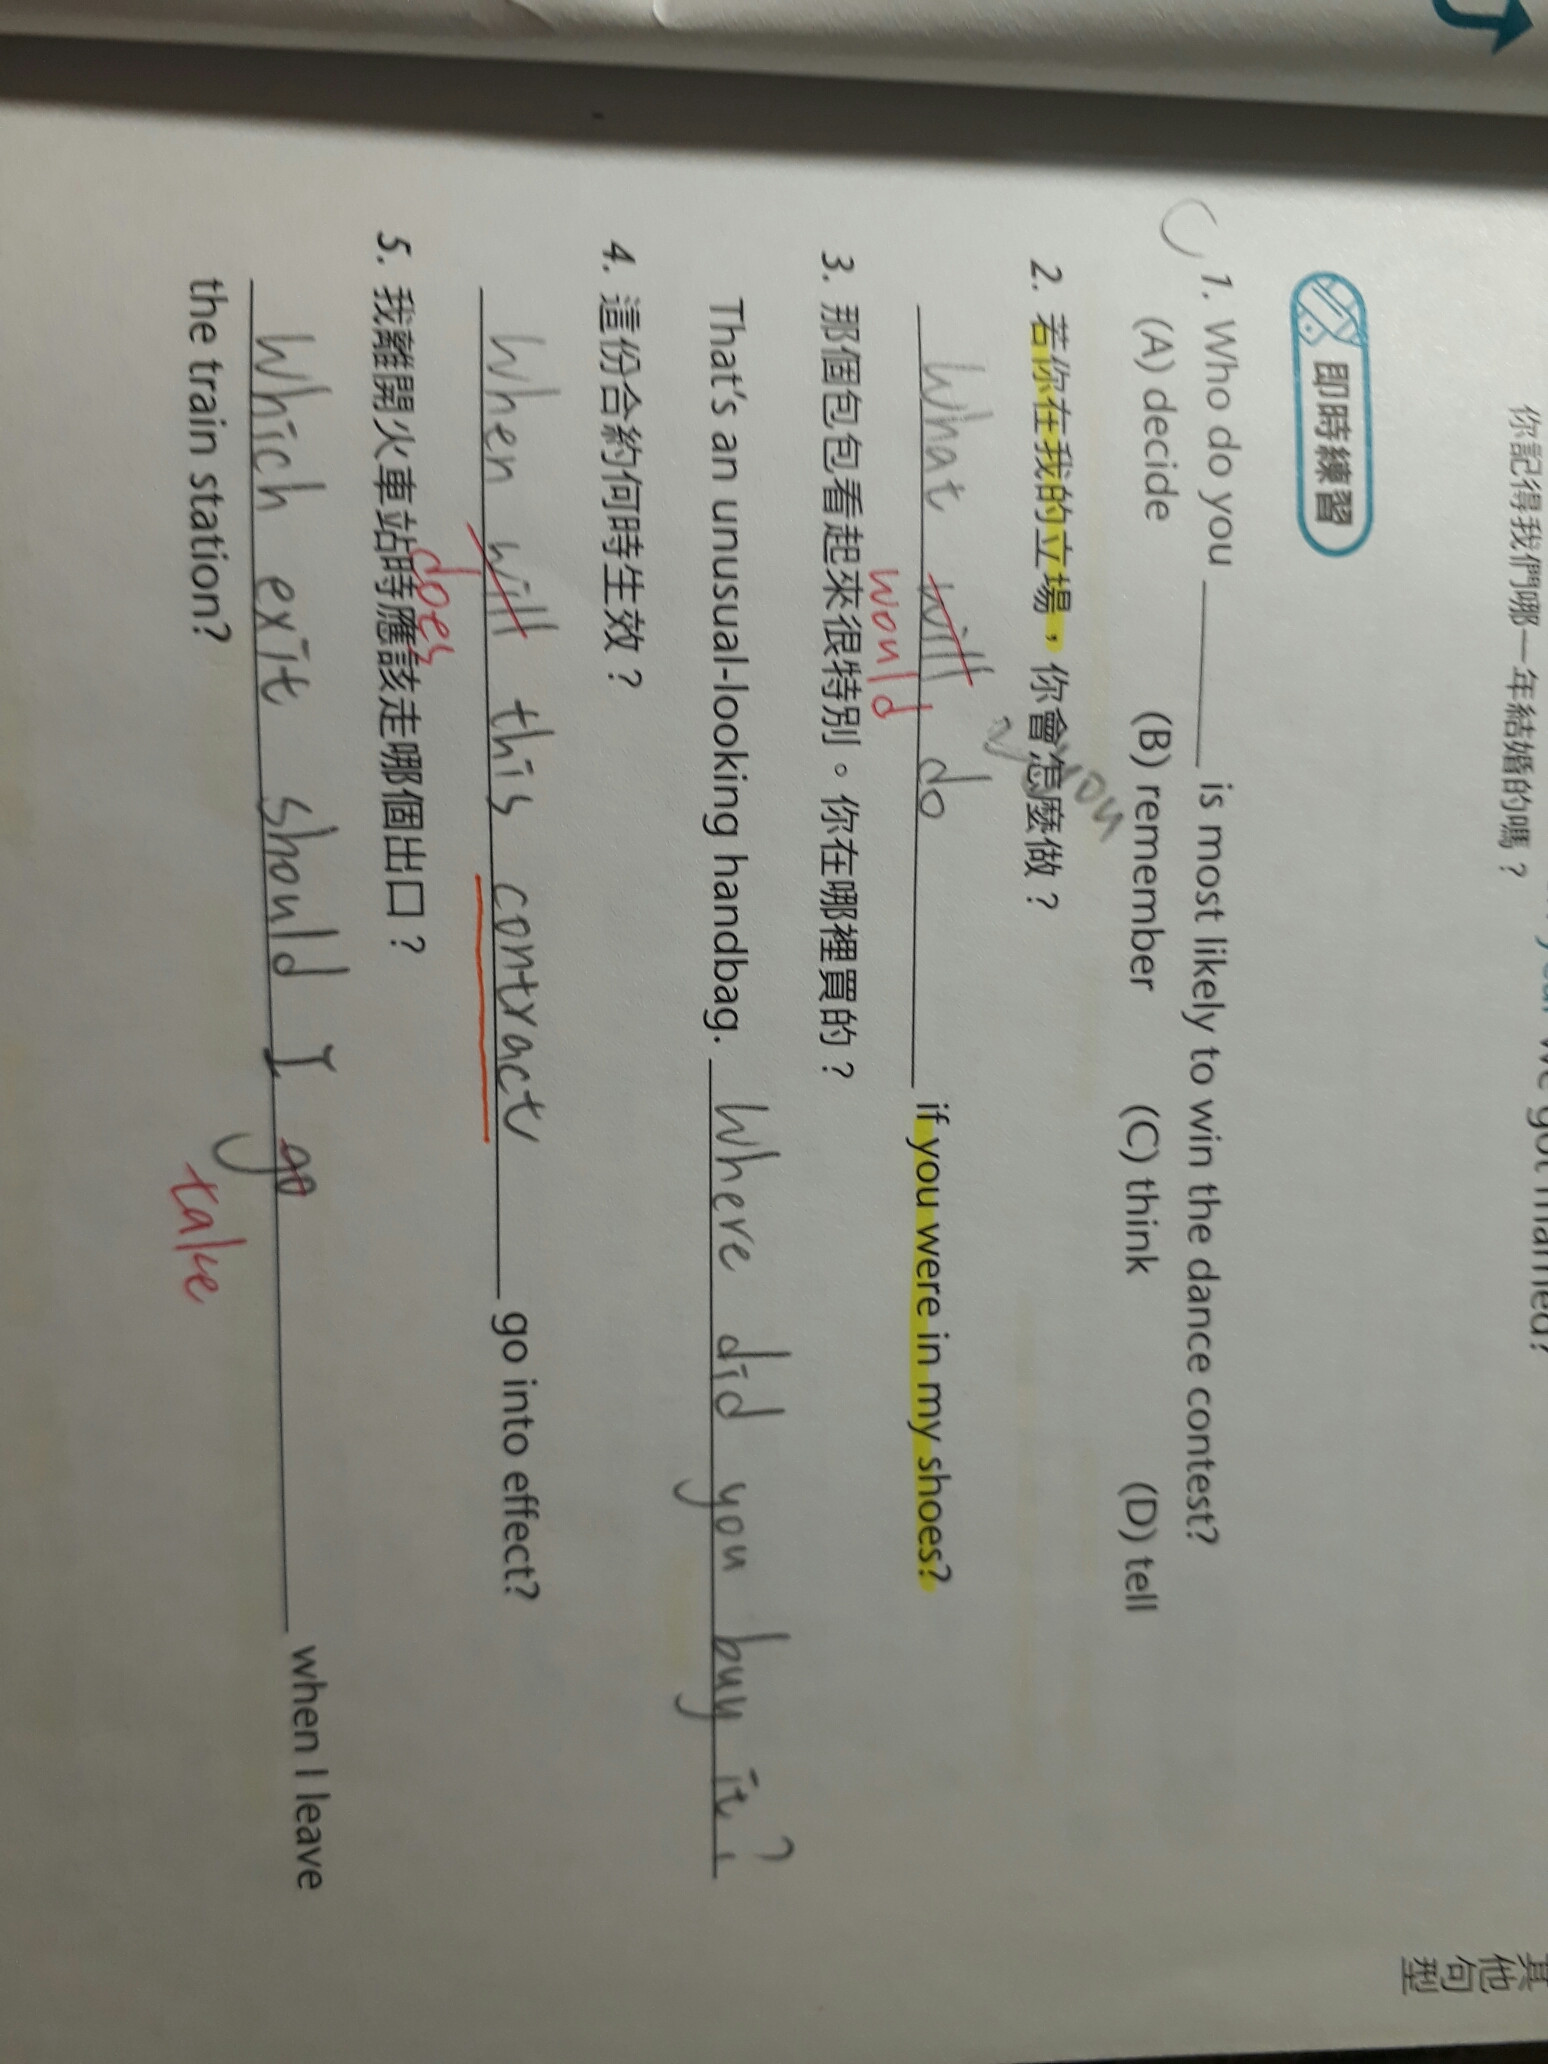 你記得我們哪一年結婚的嗎？
即時練習
C 1. Who do you ________ is most likely to win the dance contest?
(A) decide (B) remember (C) think (D) tell
2. 若你在我的立場，你會怎麼做？
you
What will do if you were in my shoes?
would
3. 那個包包看起來很特別。你在哪裡買的？
That's an unusual-looking handbag. Where did you buy it?
4. 這份合約何時生效？
When will this contract go into effect?
does
5. 我離開火車站時應該走哪個出口？
Which exit should I go when I leave
take
the train station?
其他句型